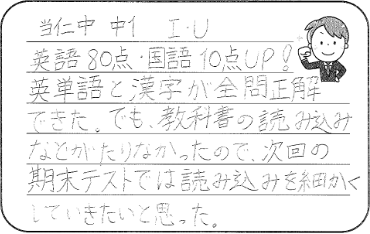 当仁中 中1 I・U
英語80点・国語10点UP!
英単語と漢字が全問正解
できた。でも、教科書の読み込み
なとがたりなかったので、次回の
期末テストでは読み込みを細かく
していきたいと思った。